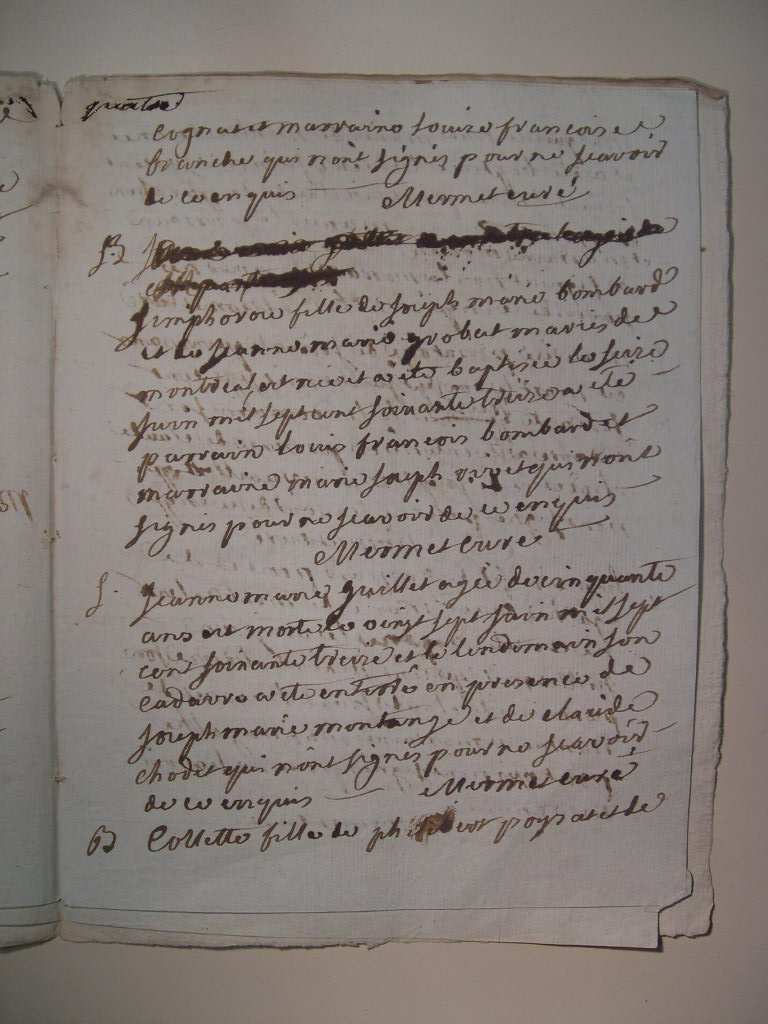 quatre
Cognat et marraine Louise francoise
branche qui n'ont signés pour ne scavoir
de ce enquis Mermet curé
B
Simphorose fille de Joseph marie bombard
et de Jeanne marie grobat mariés de
montreal, est née et a été baptisée le seize
Juin mil sept cent soixante treize a été
parrain Louis francois bombard et
marraine marie Joseph qui n'ont
signés pour ne scavoir de ce enquis
Mermet curé
S. Jeanne marie Guillet agée de cinquante
ans est morte le vingt sept Juin mil sept
cent soixante treize et le lendemain son
Cadavre a été enterré en presence de
Joseph marie montange et de claude
chodet qui n'ont signés pour ne scavoir
de ce enquis Mermet curé
B Collette fille de philibert poysat et de